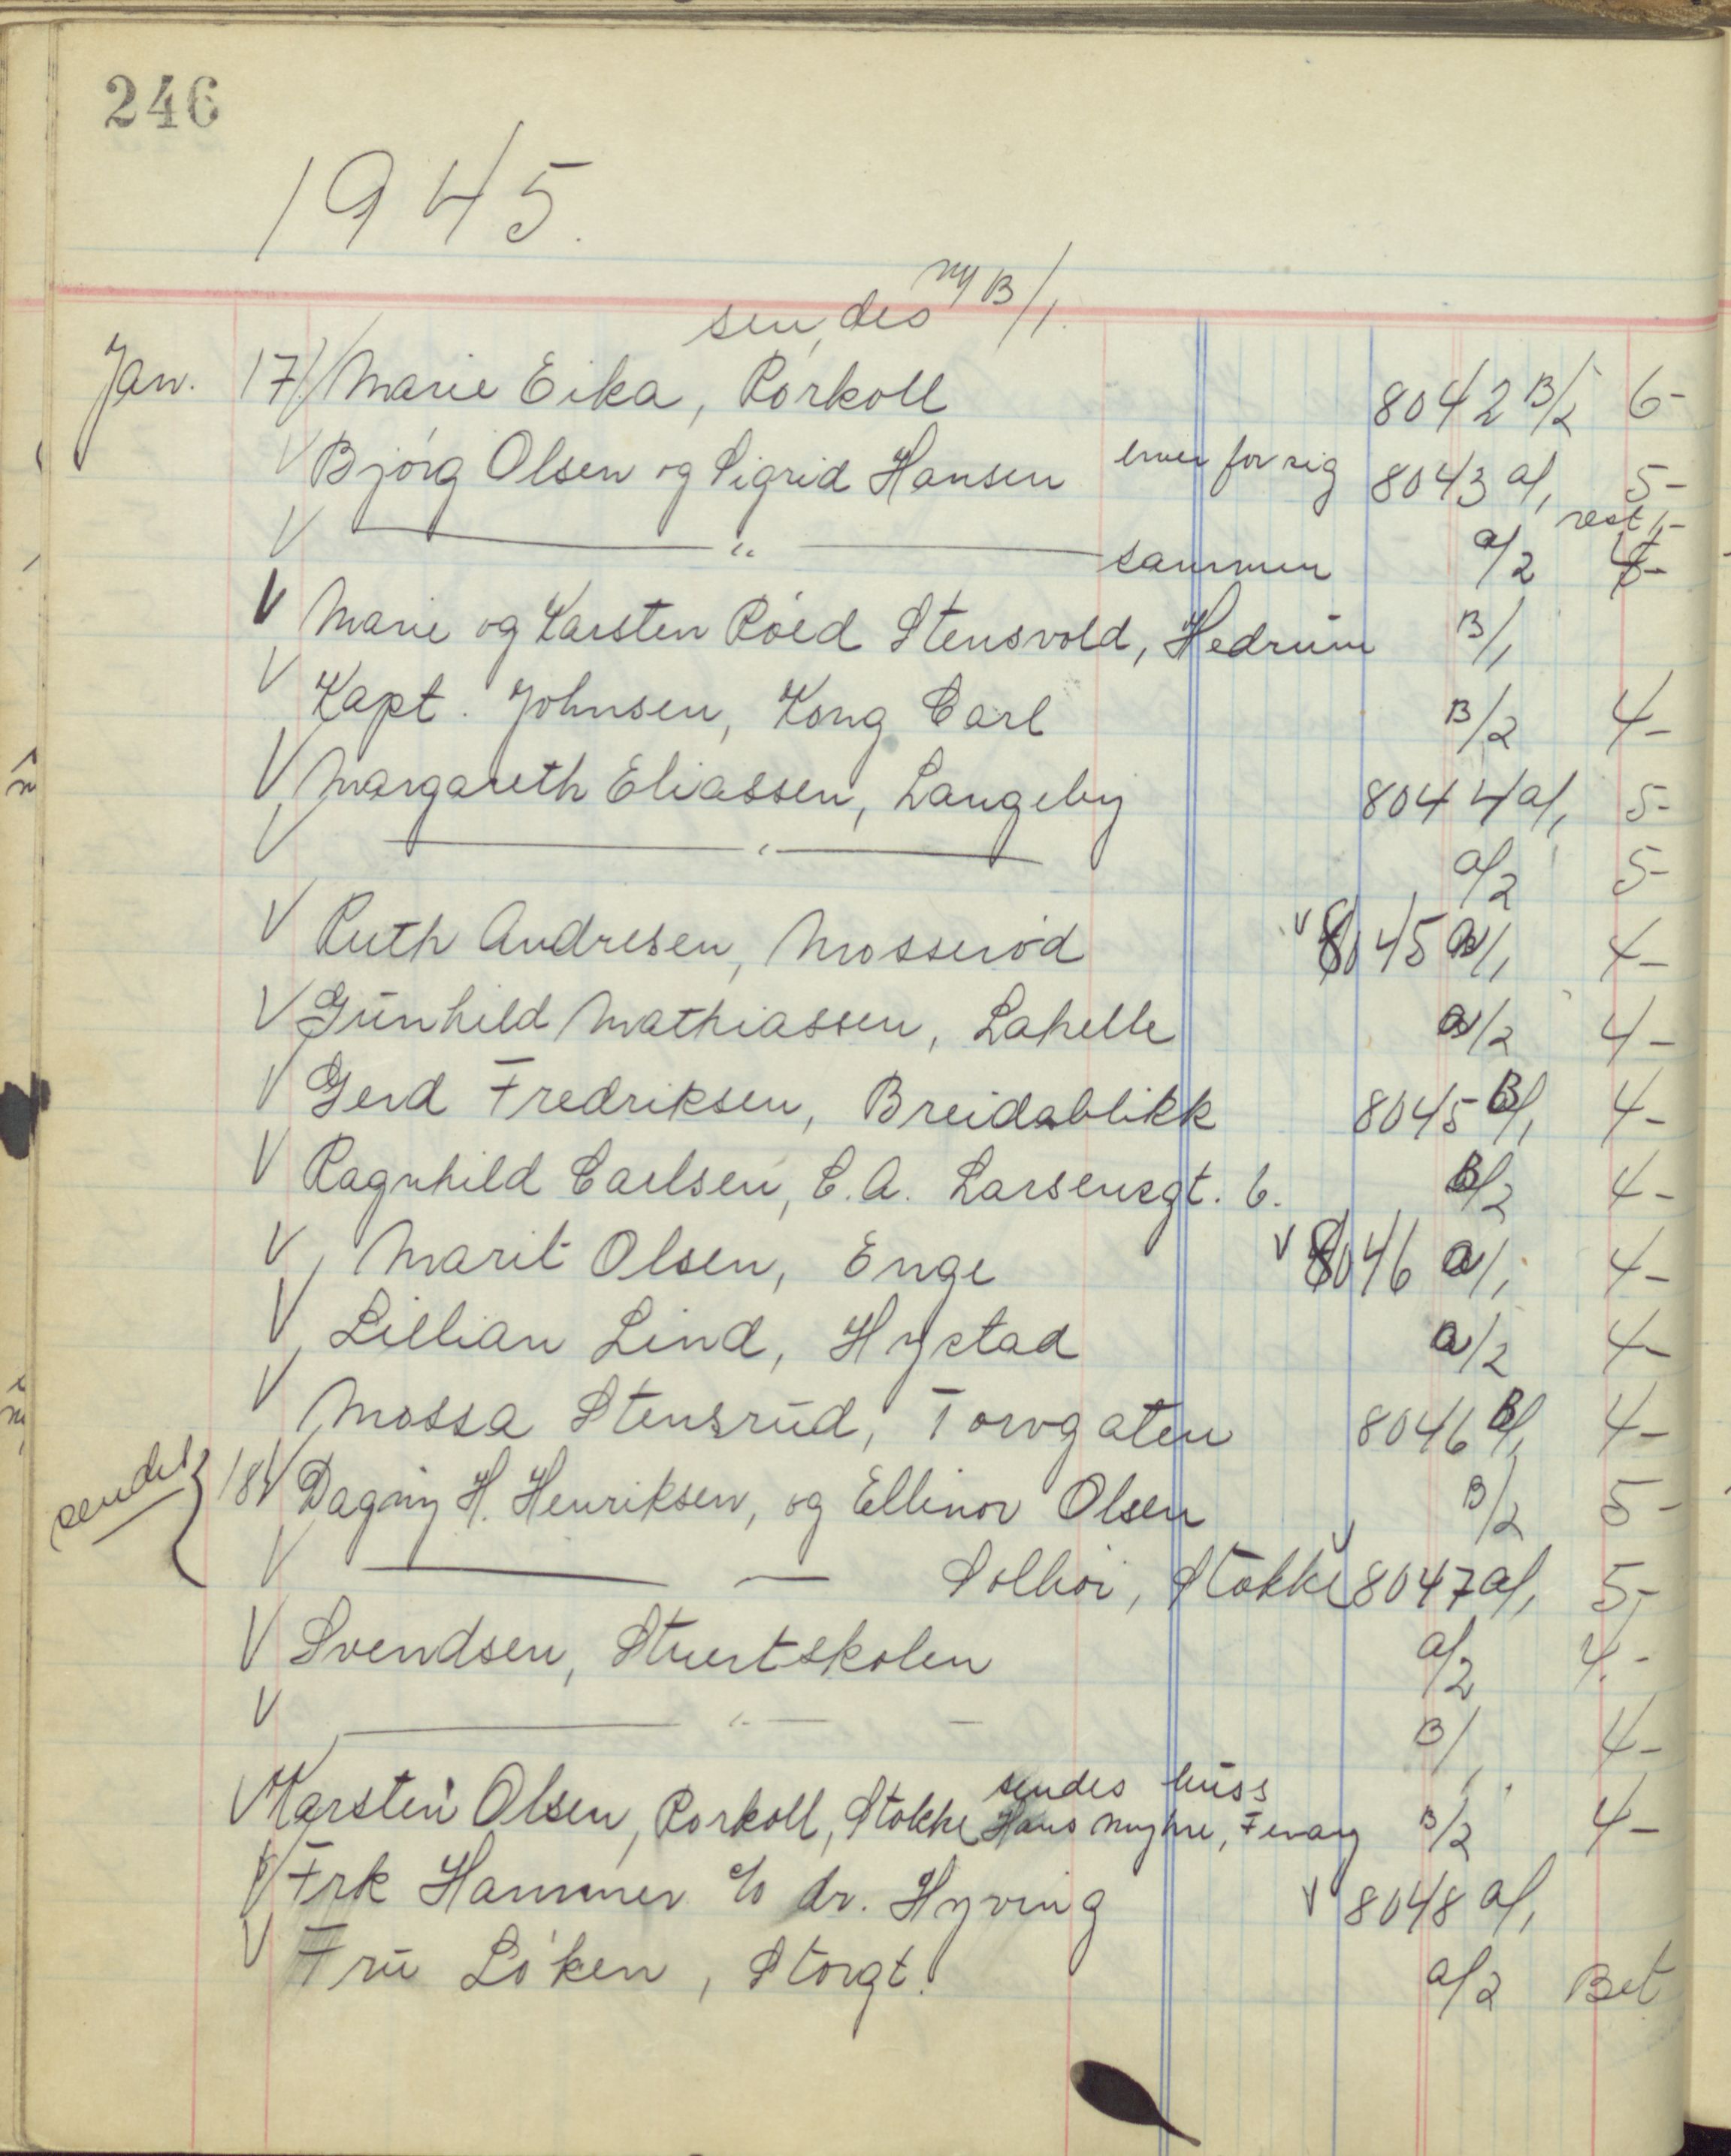 246
1945.
ny B/1.
sendes
Jan. 17/ V Marie Eika, Rørkoll 8042 B/2 6-
V Bjørg Olsen og Sigrid Hansen hver for sig 8043 a/1 5-
rest 1,-
V —— " —— sammen a/2 4-
V Marie og Karsten Röed Stensvold, Hedrum B/1
V Kapt. Johnsen, Kong Carl B/2 4-
V Margareth Eliassen, Langeby 8044 a/1 5-
V —— " —— a/2 5-
V Ruth Andresen, Mosserød V 8045 a/1 4-
V Gunhild Mathiassen, Lahelle a/2 4-
V Gerd Fredriksen, Breidablikk 8045 B/1 4-
V Ragnhild Carlsen, C.A. Larsensgt. 6. B/2 4-
V Marit Olsen, Enge V 8046 a/1 4-
V Lillian Lind, Hystad a/2 4-
V Mossa Stensrud, Torvgaten 8046 B/1 4-
sendes } 18 V Dagny H. Henriksen, og Ellinor Olsen B/2 5-
V —— — Solhøi, Stokke V 8047 a/1 5-
V Svendsen, Stuertskolen a/2 4.-
V —— " — — B/1 4-
sendes buss
V Karsten Olsen, Rørkoll, Stokke Hans Myhre, Fevang B/2 4-
V Frk Hammer c/o dr. Hyving V 8048 a/1
V Fru Løken, Storgt. a/2 Bet